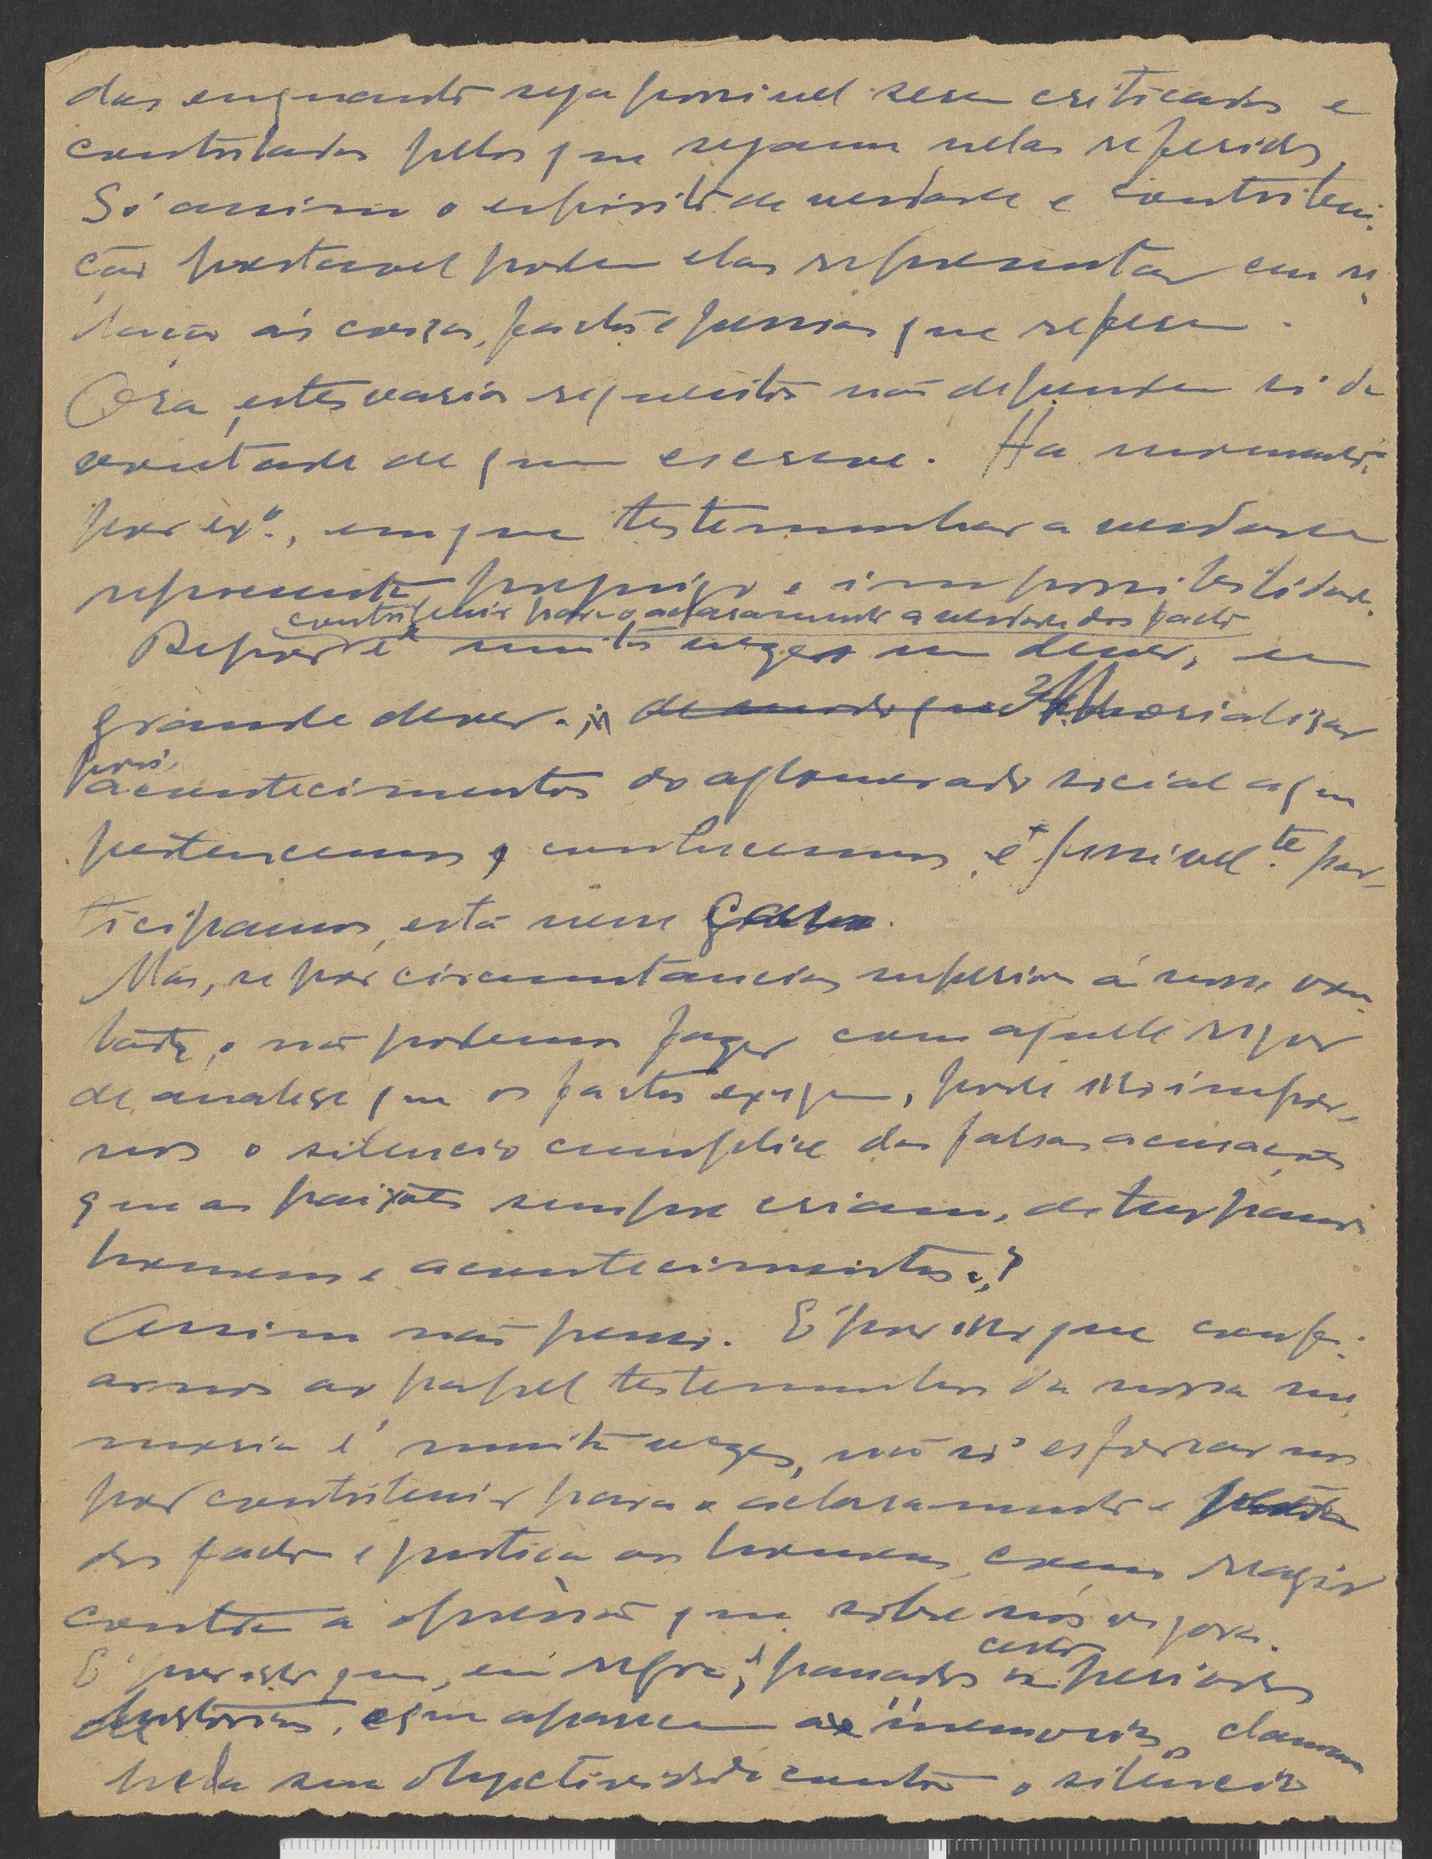 das enquanto seja possivel serem criticadas e
controladas pelos que sejam nelas referidos.
Só assim o espirito de verdade e contribui-
ção prestavel podem elas representar em re-
lação ás coisas, factos e pessoas que referem.
Ora, estes varios requisitos não dependem só da
vontade de quem escreve. Ha momentos,
por exº., em que testemunhar a verdade
representa perigo e impossibilidade.
contribuir para o aclaramento a verdade dos factos
Repor é muitas vezes um dever, um
grande dever. de modo que memorializar
pois,
acontecimentos do aglomerado social a que
pertencemos, conhecemos e possivel.te par-
ticipamos, está nesse caso.
Mas, se por circunstancias superiores á nossa von-
tade, o não podemos fazer com aquele rigor
de analise que os factos exigem, pode isso impor-
nos o silencio cumplice das falsas acusações
que as paixões sempre criam, deturpando
homens e acontecimentos?
Assim não penso. E' por isso que confi-
armos ao papel testemunhos da nossa me-
moria é muitas vezes, não só esforçar-nos
por contribuir para o aclaramento
dos factos e justiça aos homens, como reagir
contra a opressão que sobre nós vigora.
E' por isso que, em regra, passados certos periodos
historicos, é que aparecem as memorias, clamando
pela sua objectividade contra o silencio